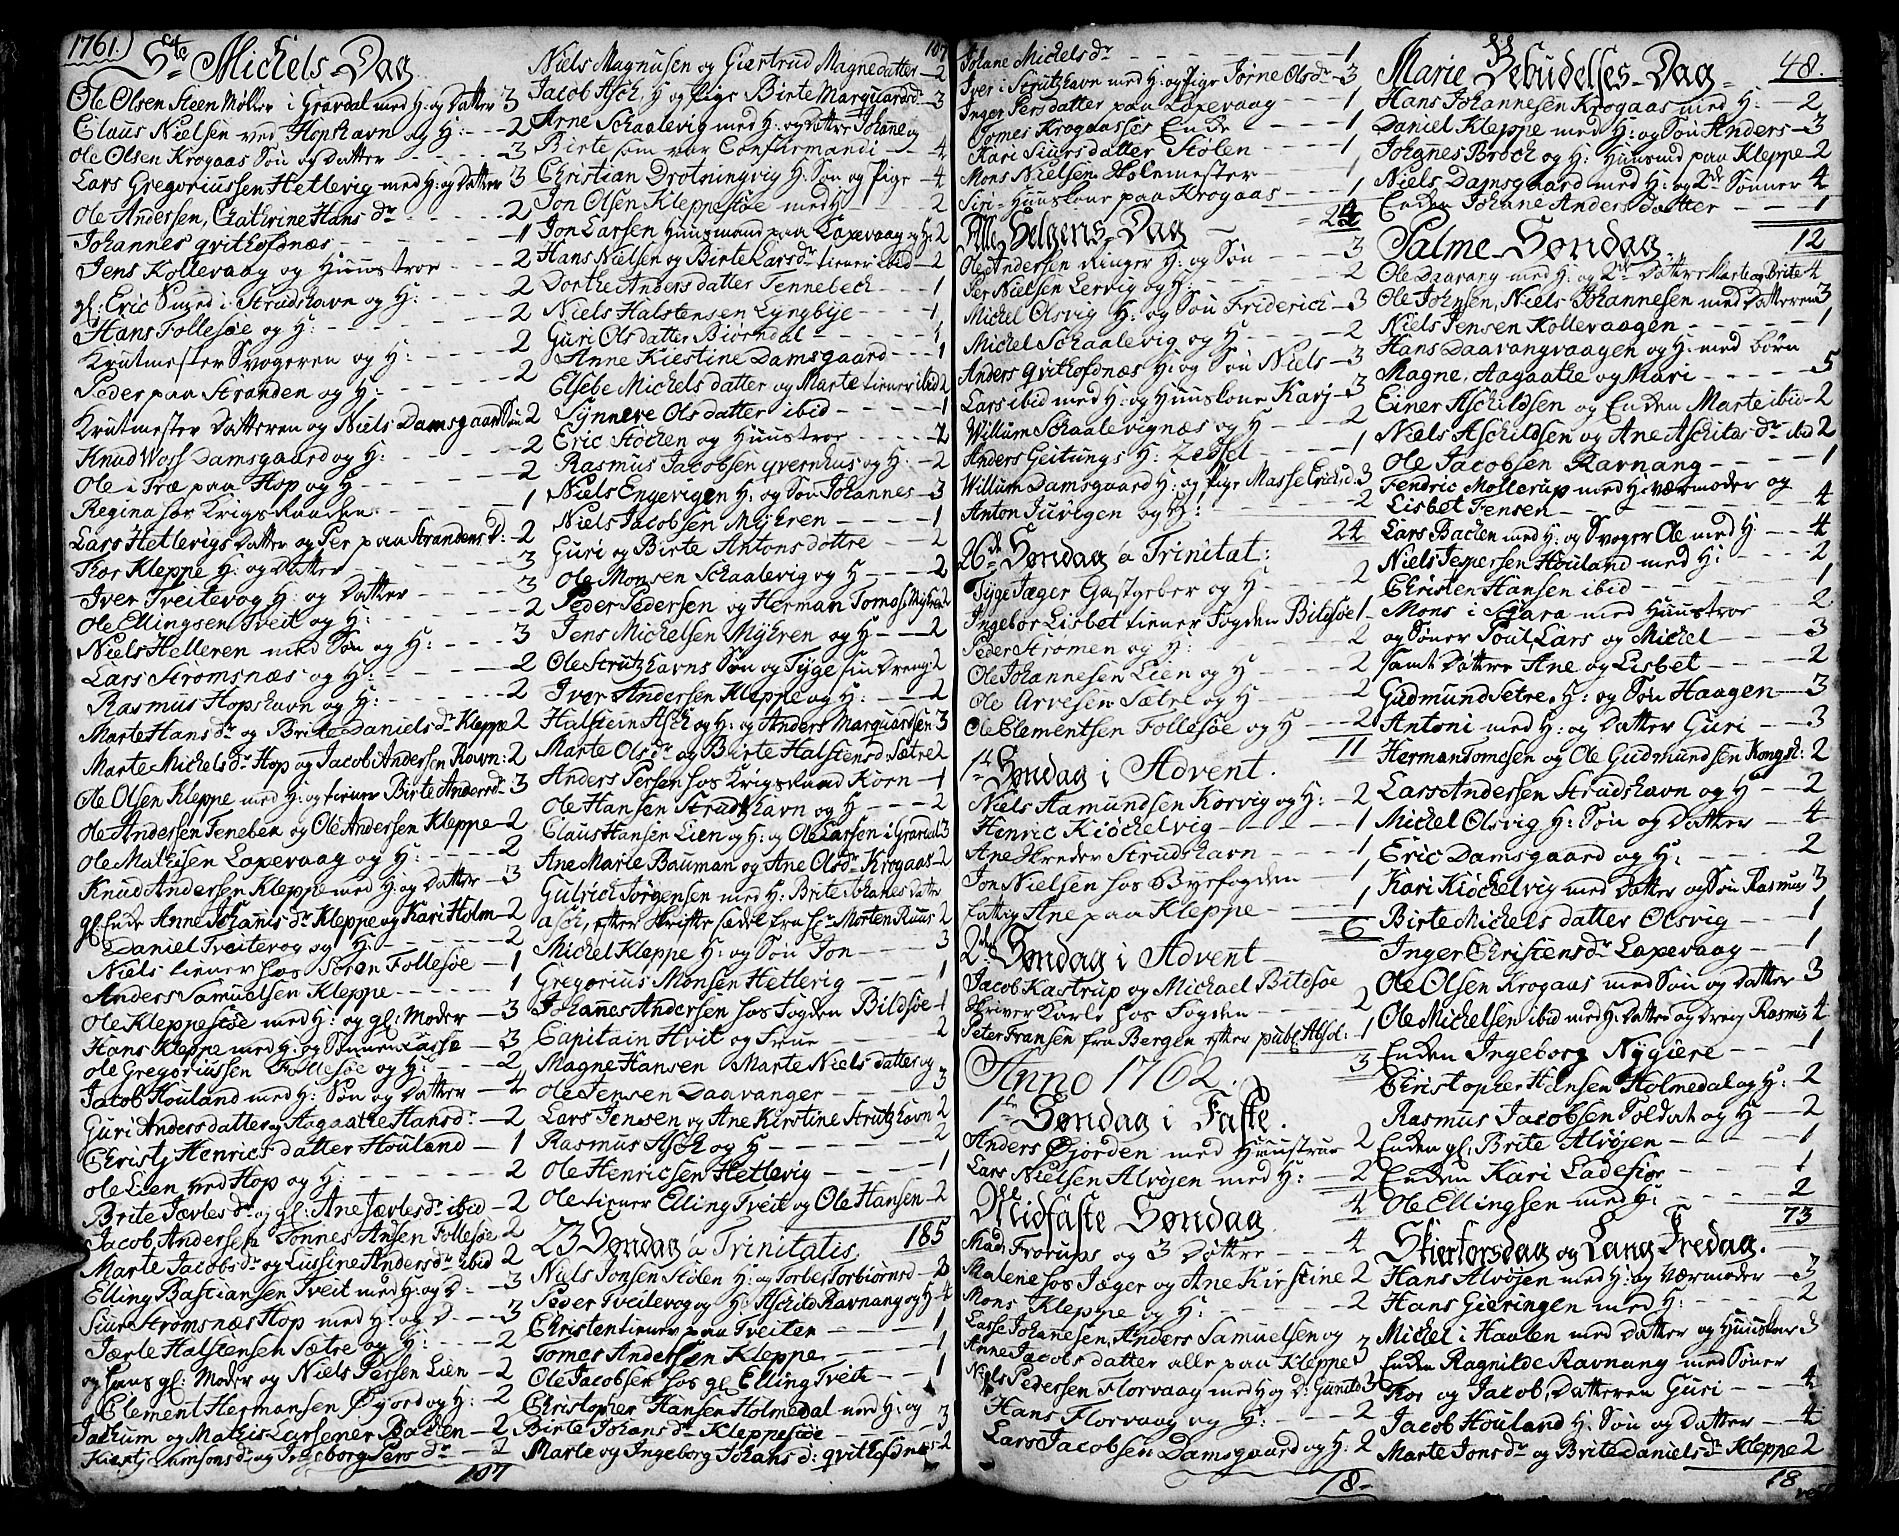 1761.)
Ste Michels Dag
Ole Olsen Steen Møller i Gravdal med H: og Datter 3
Claus Nielsen ved Hopshavn og H: 2
Ole Olsen Krogaas Søn og Datter 3
Lars Gregoriussen Hetlevig med H: og Datter 3
Ole Andersen, Cathrine Hans dr 2
Johannes qvithofdnæs 1
Jens Kollevaag og Huustroe 2
gl: Eric Smed i Strudshavn og H: 2
Hans Follesøe og H: 2
Krutmester Svogeren og H: 2
Peder paa Stranden og H: 2
Krutmester Datteren og Niels Damsgaard Søn 2
Knud Woss Damsgaard og H: 2
Ole i Træ paa Hop og H 2
Regina hos Krigsraaden 1
Lars Hetlevigs Datter og Per paa Strandens D: 2
Thor Kleppe H: og Datter 3
Iver Tveitevog H: og Datter 3
Ole Ellingsen Tveit og H: 2
Niels Helleren med Søn og H: 3
Lars Strømsnæs og H: 2
Rasmus Hopshavn og H: 2
Marte Hans dr og Brite Daniels dr Kleppe 2
Marte Michels dr Hop og Jacob Andersen Ravn: 2
Ole Olsen Kleppe med H: og tiener Birte Anders dr 3
Ole Andersen Teneben og Ole Andersen Kleppe 2
Ole Mathisen Loxevaag og H: 2
Knud Andersen Kleppe med H: og Datter 3
gl: Enke Anne Johanis dr Kleppe og Kari Holm 2
Daniel Tveitevog og H: 2
Niels tiener hos Søren Follesøe 1
Anders Samuelsen Kleppe 1
Ole Kleppestøe med H: og gl: Moder 3
Hans Kleppe med H: og Sønnen Lasse 3
Ole Gregoriussen Follesøe og H: 2
Jacob Houland med H: Søn og Datter 4
Guri Andersdatter og Aagaathe Hansdr 2
Christj Henrics datter Houland 1
Ole Lien ved Hop og H: 2
Brite Jærles dr og gl: Ane Jærles dr ibid 2
Jacob Andersen Tonnes Ansen Follesøe 2
Marte Jacobs dr og Lussine Anders dr ibid 2
Elling Bastiansen Tveit med H: og D 3
Siur Strømsnæs Hop med H: og D 3
Jærle Halstensen Sætre og H: 2
og hans gl: Moder og Niels Persen Lien 2
Clement Hermansen Øyjord og H: 2
Jachum og Mathis Larsener Backen 2
Kierstj Simons dr og Ingeborg Pers dr 2
107
107
Niels Magnusen og Giertrud Magnedatter 2
Jacob Asch, H og pige Birte Marquardsdr 3
Arne Schaalevig med H: og datter Johane og
Birte som var Confirmandi 4
Christian Drotningvig H: Søn og Pige 4
Jon Olsen Kleppestøe med H 2
Jon Larsen Huusmand paa Loxevaag og H: 2
Hans Nielsen og Birte Lars dr tiener ibid 2
Dorthe Anders datter Tennebech 1
Niels Halstensen Lyngbye 1
Guri Ols datter Biørndal 1
Anne Kiestine Damsgaard 1
Elsebe Michels datter og Marte tiener ibid 2
Synneve Ols datter ibid 1
Eric Støcken og Huustroe 2
Rasmus Jacobsen qvernhus og H: 2
Niels Engevigen H: og Søn Johannes 3
Niels Jacobsen Myhren 1
Guri og Birte Antons døttre 2
Ole Monsen Schaalevig og H 2
Peder Pedersen og Herman Tomas: Myhren 2
Jens Michelsen Myhren og H 2
Ole Strutzhavns Søn og Tyge sin Dreng 2
Iver Andersen Kleppe og H: 2
Halstein Asch og H: og Anders Marquardsen 3
Marte Ols dr og Birte Halstens d: Sætre 2
Anders Persen hos Krigsraad Korn 1
Ole Hansen Strudshavn og H 2
Claus Hansen Lien og H: og Ole Larsen i Gravdal 3
Ane Marie Bauman og Ane Ols dr Krogaas 2
Gulrich Jørgensen med H: Brite Johanes dater
Asch, efter Skrifte sædel fra Hr Morten Ruus 2
Michel Kleppe H: og Søn Jon 3
Gregorius Monsen Hetlevig 1
Johanes Andersen hos Fogden Bildsøe 1
Capitain Hvit og Frue 2
Magne Hansen Marte Niels datter og
Ole Jensen Daavanger 3
Lars Jensen og Ane Kirstine Strutzhavn 2
Rasmus Asch og H 2
Ole Henricsen Hetlevig 1
Ole tiener Elling Tveit og Ole Hansen 2
185
23 Søndag a Trinitatis
Niels Jonsen Stølen H: og Torbes Torbiørns d 3
Peder Tveitevog og H: Aschild Ravnang og H 4
Christen tiener paa Tveiten 1
Tomas Andersen Kleppe 1
Ole Jacobsen hos gl Elling Tveit 1
Christopher Hansen Holmedal med H: og
Birte Johans dr Kleppesøe 3
Marte og Ingeborg Johans d: qvithofdnæs 2
Jolane Michels dr 1
Iver i Strutzhavn med H: og pige Jørne Ols dr 3
Inger Pers datter paa Loxevaag 1
Tomes Krogaasses Enke 1
Kari Siursdatter Stølen 1
Mons Nielsen Holemester 1
Siri Huuskone paa Krogaas 1
Alle Helgens Dag
Ole Andersen Ringer H: og Søn 3
Per Nielsen Lervig og H: 2
Michel Olsvig H: og Søn Friderich 3
Michel Schaalevig og H 2
Anders qvithofdnæs H: og Søn Niels 3
Lars ibid med H: og Huuskone Karj 3
Willum Schaalevignæs og H 2
Anders Geitungs H: Zedsel 1
Willum Damsgaard H: og pige Masse Erichsd: 3
Anton Juvigen og H: 2
24
26de Søndag a Trinitat:
Tyge Jæger Gastgeber og H 2
Ingebor Lisbet tiener Fogden Bildsøe 1
Peder Strømen og H: 2
Ole Johannesen Lien og H 2
Ole Arvesen Sætre og H 2
Ole Clementsen Follesøe og H 2
11
1te Søndag i Advent.
Niels Aamundsen Korvig og H: 2
Henric Kiøchelvig 1
Ane Skreder Strudshavn 1
Jon Nielsen hos Byefogden 1
Fattig Ane paa Kleppe 1
6
2den Søndag i Advent
Jacob Kastrup og Michael Bildsøe
Skriver Karle hos Fogden 2
Peter Fransen fra Bergen efter publ: Absol: 1
3
Anno 1762.
1te Søndag i Faste.
Anders Øjorden med Huustrue 2
Lars Nielsen Alvøjen med H: 2
4
Midfaste Søndag
Mad: Frorups og 3 Døttre 4
Malene hos Jæger og Ane Kirstine 2
Mons Kleppe og H: 2
Lasse Johannesen, Anders Samuelsen og
Anne Jacobs datter alle paa Kleppe 3
Niels Pedersen Florvaag med H og D: Gunild 3
Hans Florvaag og H: 2
Lars Jacobsen Damsgaard og H: 2
18
48.
Marie Bebudelses Dag
Hans Johannesen Krogaas med H: 2
Daniel Kleppe med H: og Søn Anders 3
Johanes Broch og H: Huusmd paa Kleppe 2
Niels Damsgaard med H: og 2de Sønner 4
Enken Johane Anders datter 1
12
Palme Søndag
Ole Daavang med H: og 2de Døttre Marte og Brite 4
Ole Johnsen, Niels Johannesen med Datteren 3
Niels Jensen Kollevaagen 1
Hans Daavangvaagen og H: med børn
Magne, Aagaathe og Mari 5
Einer Aschildsen og Enken Marte ibid 2
Niels Aschildsen og Ane Aschilds dr ibid 2
Ole Jacobsen Ravnang 1
Fendric Mollerup med H: Værmoder og
Lisbet Jensen 4
Lars Backen med H: og Svoger Ole med H 4
Niels Jeppersen Houland med H: 2
Christen Hansen ibid 1
Mons i Skara med Huustroe 2
og Søner Poul, Lars og Michel 3
samt Døttre Ane og Lisbet 2
Gudmund Setre, H: og Søn Haagen 3
Antoni med H: og Datter Guri 3
Herman Tomesen og Ole Gudmundsen Kongsd: 2
Lars Andersen Strudshavn og H 2
Michel Olsvig H: Søn og Datter 4
Eric Damsgaard og H: 2
Kari Kiøchelvig med Datter og Søn Rasmus 3
Birte Michels datter Olsvig 1
Inger Christens dr Loxevaag 1
Ole Olsen Krogaas med Søn og Datter 3
Ole Michelsen ibid med H: Datter og dreng Rasmus 4
Enken Ingeborg Nygiere 1
Christopher Hansen Holmedal og H: 2
Rasmus Jacobsen Soldat og H 2
Enken gl: Brite Alvøjen 1
Enken Kari Ladefior 1
Ole Ellingsen med H: 2
73
Skiertorsdag og Lang Fredag.
Hans Alvøjen med H: og Værmoder 3
Hans Gieringen med H: 2
Michel i Haalen med Datter og Huuskone 3
Enken Ragnilde Ravnang med Søner
Thor og Jacob, Datteren Guri 4
Jacob Houland H: Søn og Datter 4
Marte Jons dr og Brite Daniels dr Kleppe 2
18